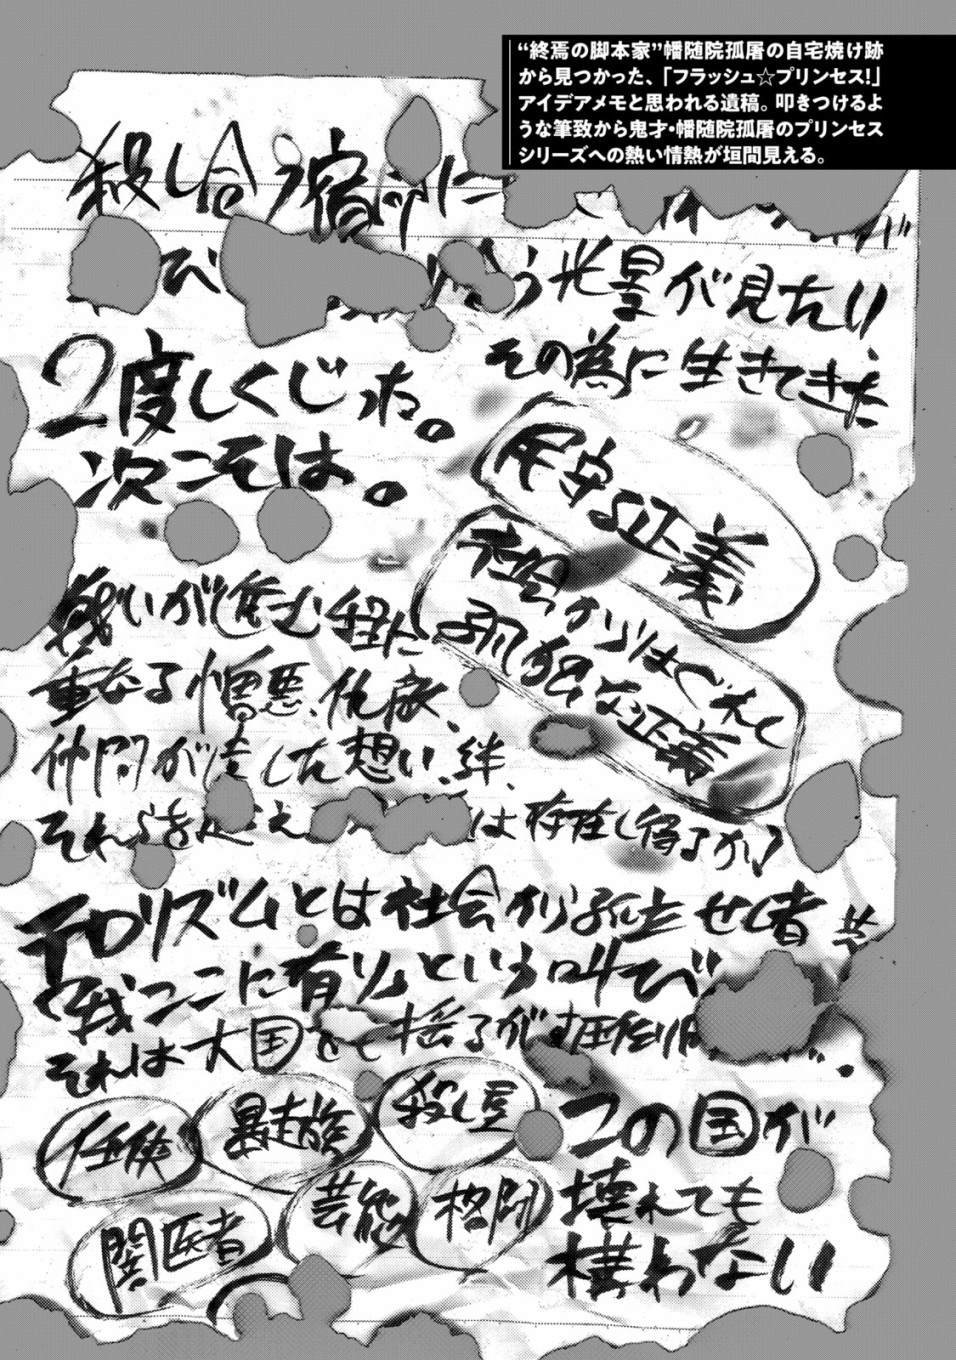 “終焉の脚本家”幡随院孤屠の自宅焼け跡
から見つかった、「フラッシュ☆プリンセス!」
アイデアメモと思われる遺稿。叩きつけるよ
うな筆致から鬼才・幡随院孤屠のプリンセス
シリーズへの熱い情熱が垣間見える。
殺し合う宿命に
び う光景が見たい
その為に生きてきた
2度しくじった。
次こそは。
尽忠な正義
社会からはぐれし
孤独な正義
戦いが進む程に
重なる憎悪、仇敵、
仲間が遺した想い、絆、
それら は存在し得るか?
テロリズムとは社会から孤立せし者共
「我ここに有り」という叫び
それは大国をも揺るがす圧倒的
任侠
暴走族
殺し屋
闇医者
芸能
格闘
この国が
壊れても
構わない